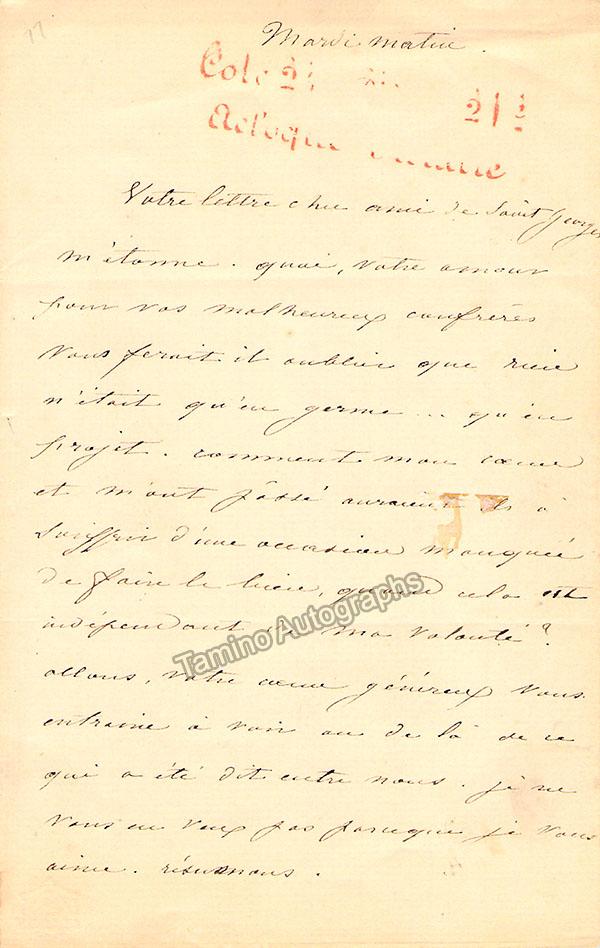 17
Mardi matin.
Cote 2
21
Votre lettre cher ami de Saint Georges
m'étonne. quoi, votre amour
pour vos malheureux confrères
vous ferait il oublier que rien
n'était qu'en germe... qu'en
projet. comment mon cœur
et mon passé auraient ils à
souffrir d'une occasion manquée
de faire le bien, quand cela est
indépendant de ma volonté?
allons, votre cœur généreux vous
entraine à voir au de là de ce
qui a été dit entre nous. je ne
vous en veux pas parceque je vous
aime. résumons.
Tamino Autographs